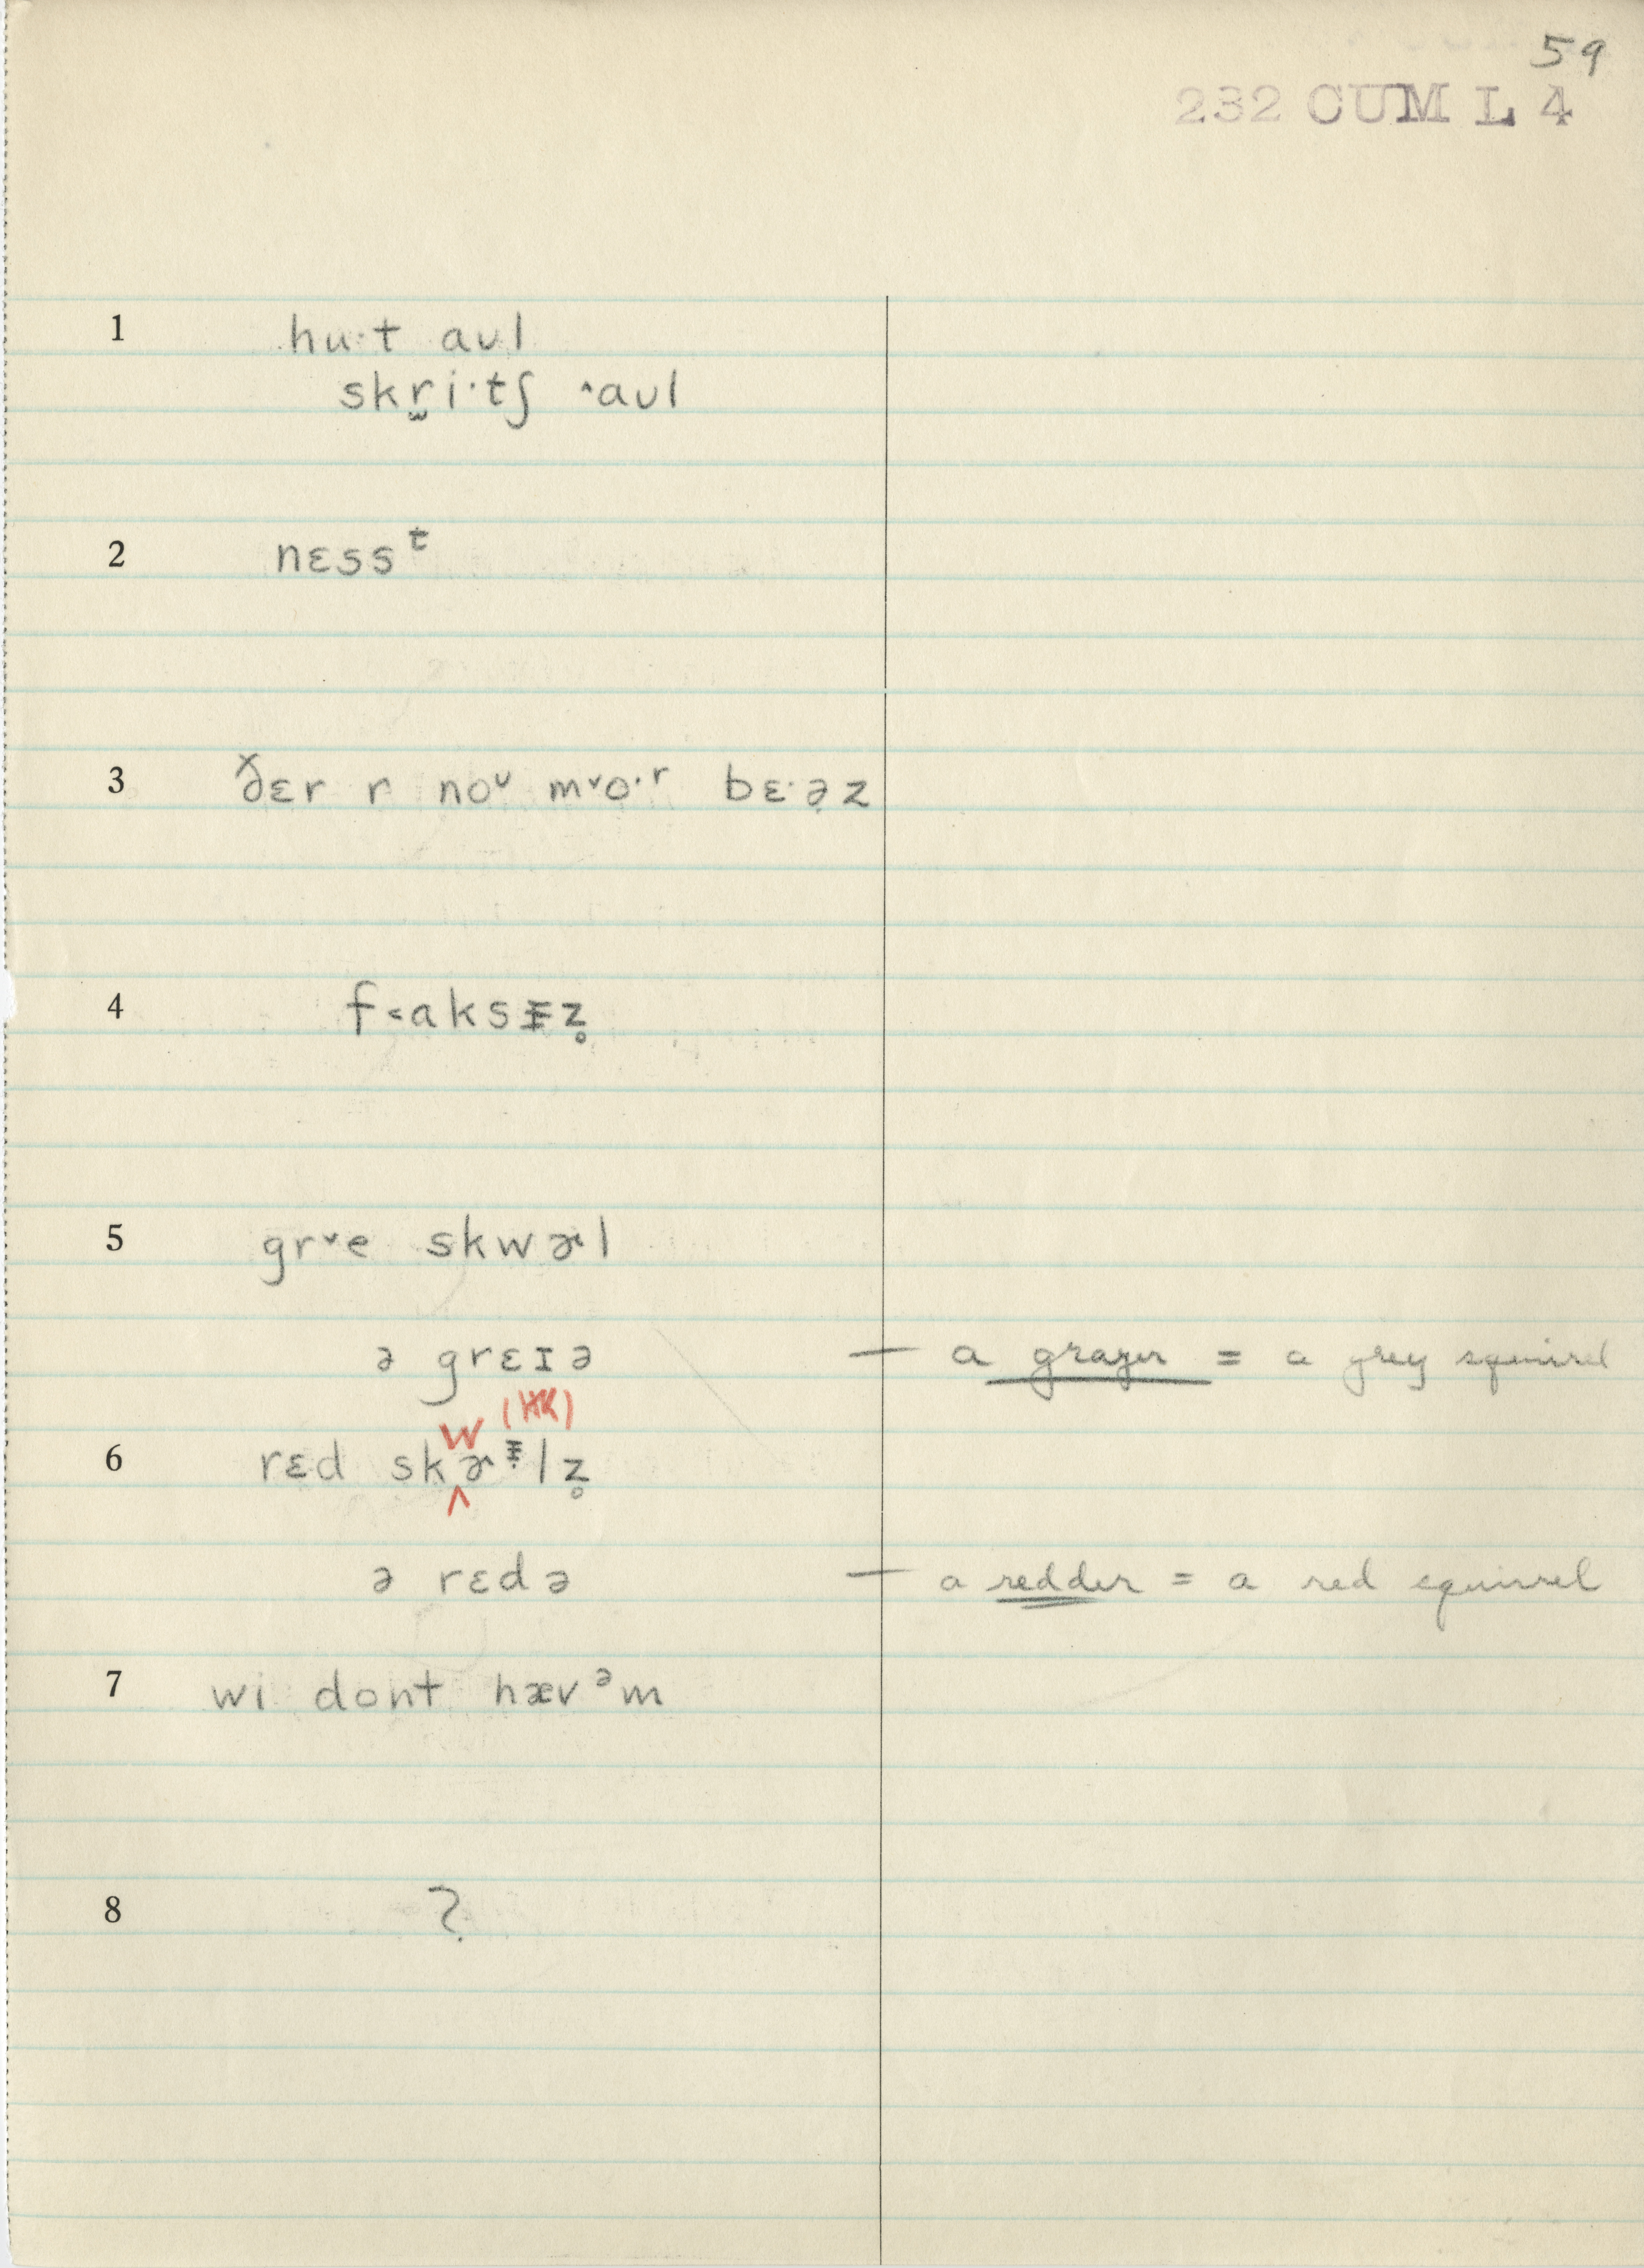 59
232 CUM L 4
1 hu·t aʊl
skr̬i·tʃ ˄aʊl
2 nɛssᵗ
3 ðɛr r noᶷ m˅o·ʳ bɛ·ə̣z
4 f˂aksɪ̵z̥
5 gr˅e skwɚl
ə grɛɪə — a grayer = a grey squirrel
W (HK)
6 rɛd skɚᵻlz̥
^
ə rɛdə — a redder = a red squirrel
7 wi dont hævᵊm
8 ?